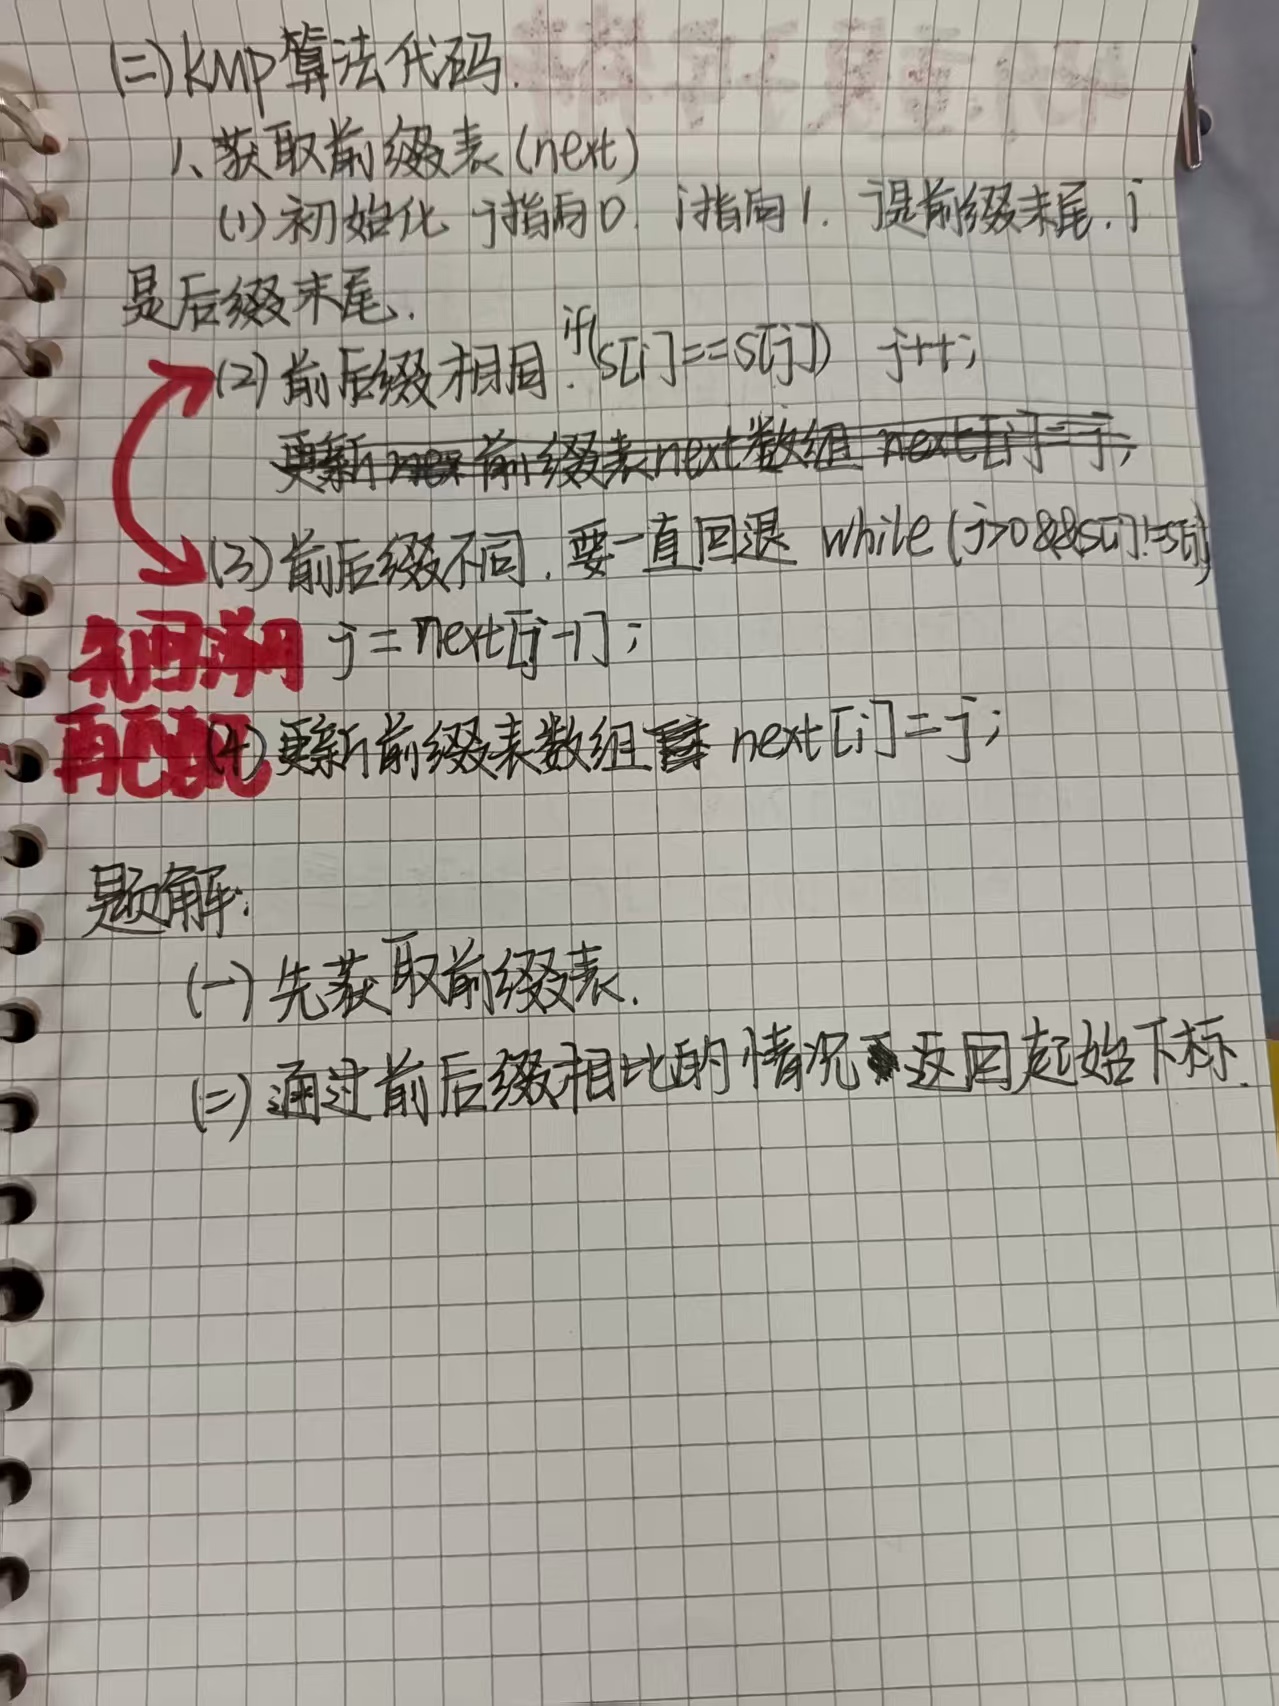 (二) KMP算法代码.
1、获取前缀表(next)
(1) 初始化 j指向0. i指向1. j是前缀末尾. i
是后缀末尾.
(2) 前后缀相同. if(s[i]==s[j]) j++;
更新nex前缀表next数组 next[i]=j;
(3) 前后缀不同. 要一直回退 while(j>0&&s[i]!=s[j])
先回溯 j=next[j-1];
再匹配 (4) 更新前缀表数组 next[i]=j;
题解:
(一) 先获取前缀表.
(二) 通过前后缀相比的情况 返回起始下标.